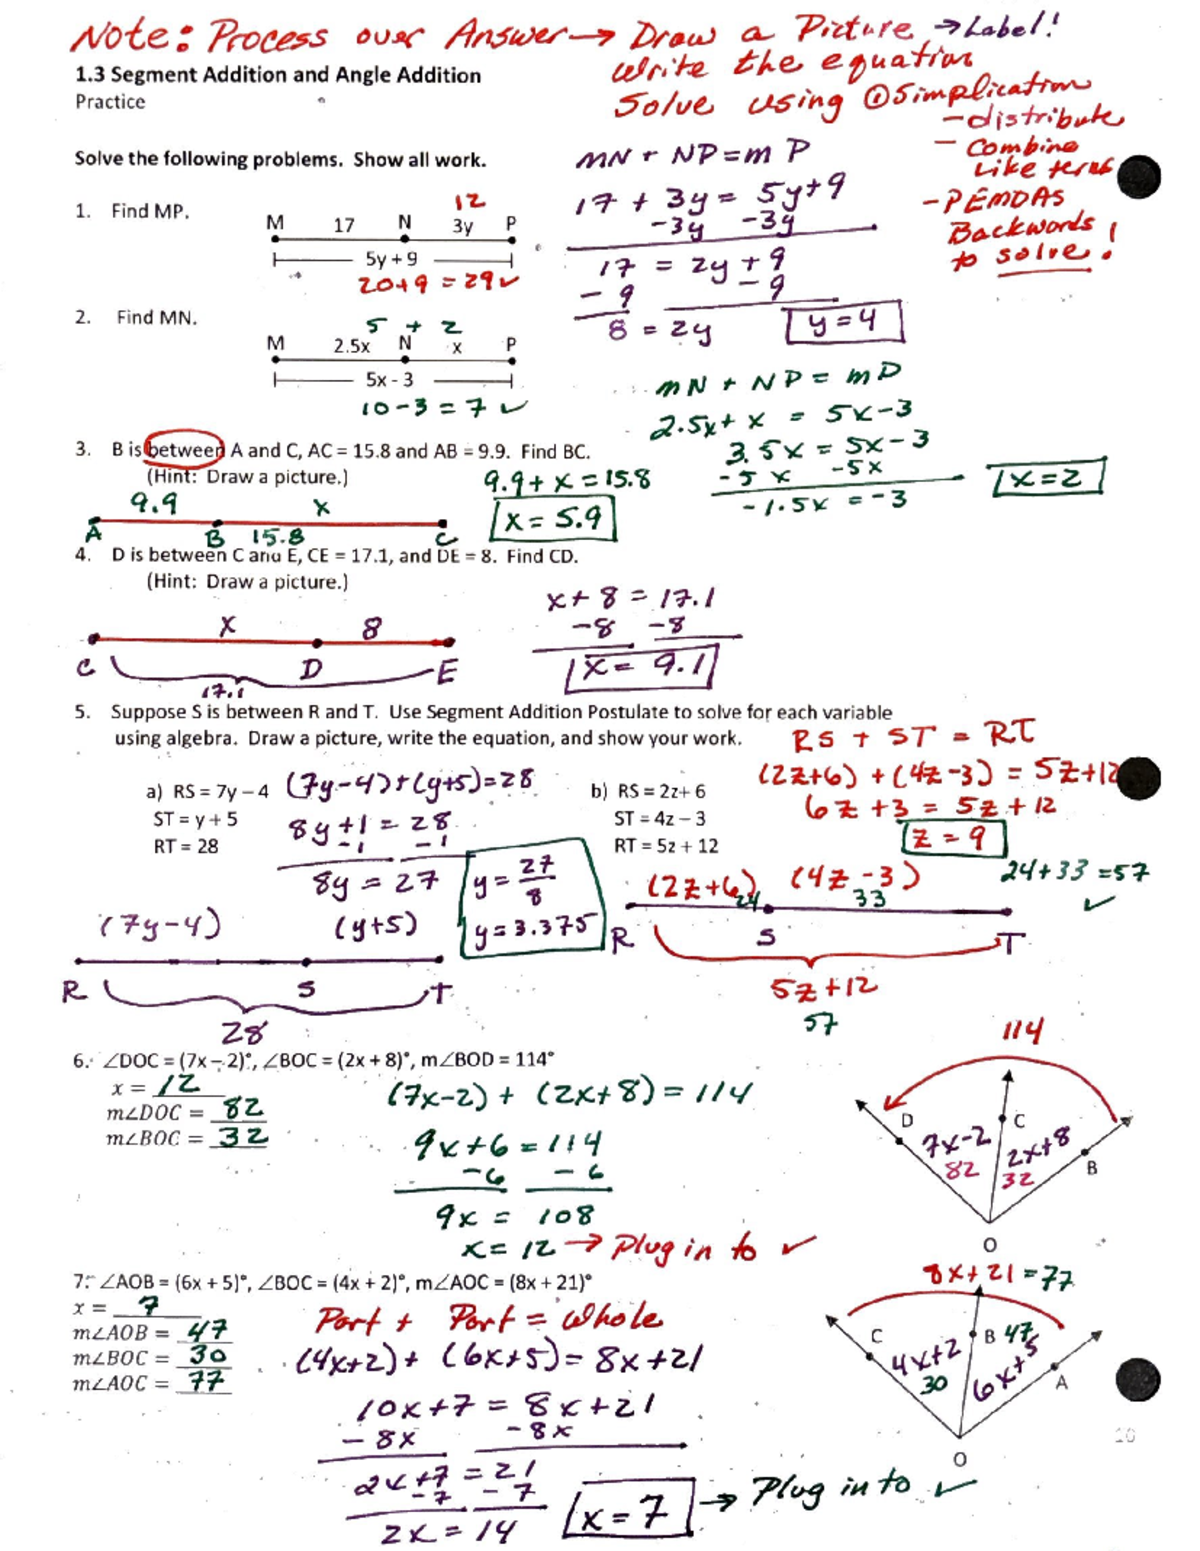 Note: Process over Answer → Draw a Picture → Label!
Write the equation
Solve using ① Simplication
- distribute
- Combine
Like terms
- PEMDAS
Backwords
to solve!
1.3 Segment Addition and Angle Addition
Practice
Solve the following problems. Show all work.
1. Find MP.
12
M 17 N 3y P
5y + 9
20+9 = 29 ✓
MN + NP = MP
17 + 3y = 5y+9
-3y -3y
17 = 2y + 9
- 9 - 9
8 = 2y y = 4
2. Find MN.
5 + 2
M 2.5x N x P
5x - 3
10-3 = 7 ✓
MN + NP = MP
2.5x + x = 5x-3
3.5x = 5x-3
-5x -5x
-1.5x = -3
x=2
3. B is between A and C, AC = 15.8 and AB = 9.9. Find BC.
(Hint: Draw a picture.)
9.9 x
A B 15.8 C
9.9 + x = 15.8
x = 5.9
4. D is between C and E, CE = 17.1, and DE = 8. Find CD.
(Hint: Draw a picture.)
x 8
C D E
17.1
x + 8 = 17.1
-8 -8
x = 9.1
5. Suppose S is between R and T. Use Segment Addition Postulate to solve for each variable
using algebra. Draw a picture, write the equation, and show your work.
a) RS = 7y – 4
ST = y + 5
RT = 28
(7y-4)+(y+5)=28
8y+1 = 28
-1 -1
8y = 27
y = 27/8
y = 3.375
(7y-4) (y+5)
R S T
28
b) RS = 2z+ 6
ST = 4z – 3
RT = 5z + 12
RS + ST = RT
(2z+6) + (4z-3) = 5z+12
6z+3 = 5z+12
z = 9
24+33 =57
✓
(2z+6) (4z-3)
24 33
R S T
5z+12
57
6. ∠DOC = (7x – 2)°, ∠BOC = (2x + 8)°, m∠BOD = 114°
x = 12
m∠DOC = 82
m∠BOC = 32
(7x-2) + (2x+8) = 114
9x+6 = 114
-6 -6
9x = 108
x = 12 → Plug in to ✓
114
D C
7x-2 2x+8
82 32
B
O
7. ∠AOB = (6x + 5)°, ∠BOC = (4x + 2)°, m∠AOC = (8x + 21)°
x = 7
m∠AOB = 47
m∠BOC = 30
m∠AOC = 77
Part + Part = Whole
(4x+2) + (6x+5) = 8x+21
10x+7 = 8x+21
-8x -8x
2x+7 = 21
-7 -7
2x = 14
x = 7 → Plug in to ✓
8x+21 =77
C B 47
4x+2 6x+5
30 A
O
16